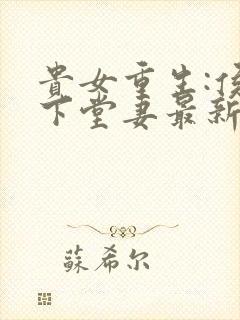 貴女重生:侯
下堂妻最新
蘇希尔